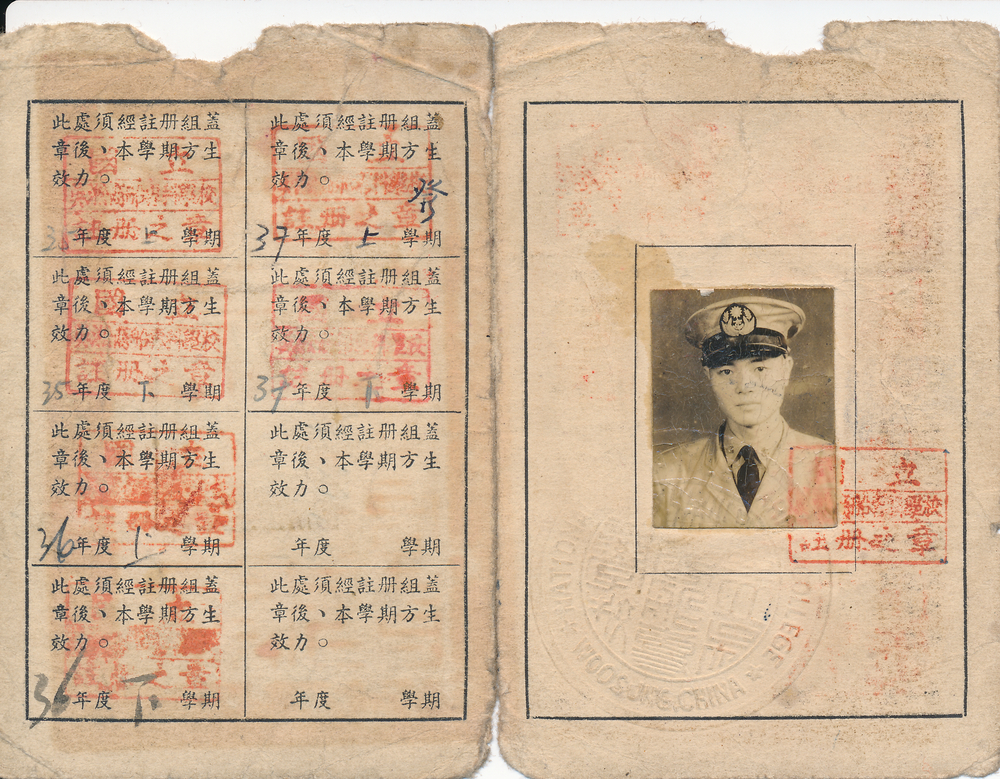 此處須經註册組蓋
章後、本學期方生
效力。
年度 上 學期
此處須經註册組蓋
章後、本學期方生
效力。
35年度 下 學期
此處須經註册組蓋
章後、本學期方生
效力。
36年度 上 學期
此處須經註册組蓋
章後、本學期方生
效力。
36年度 下 學期
此處須經註册組蓋
章後、本學期方生
效力。
37年度 上 學期
此處須經註册組蓋
章後、本學期方生
效力。
37年度 下 學期
此處須經註册組蓋
章後、本學期方生
效力。
年度 學期
此處須經註册組蓋
章後、本學期方生
效力。
年度 學期
立
學校
註册之章
CHINA